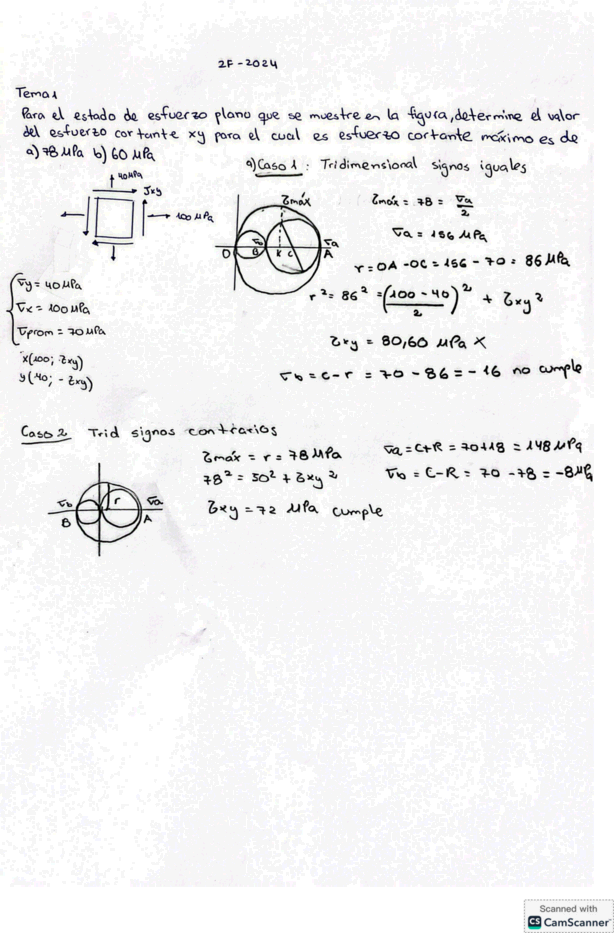 2F-2024
Tema 1
Para el estado de esfuerzo plano que se muestre en la figura, determine el valor
del esfuerzo cortante xy para el cual es esfuerzo cortante máximo es de
a) 78 MPa b) 60 MPa
a) Caso 1: Tridimensional signos iguales
40 MPa
Jxy
100 MPa
ζmáx
σb
σa
O
B
K
C
A
ζmáx = 78 = σa/2
σa = 156 MPa
r = OA - OC = 156 - 70 = 86 MPa
r² = 86² = (100 - 40 / 2)² + ζxy²
ζxy = 80,60 MPa X
σb = c - r = 70 - 86 = -16 no cumple
σy = 40 MPa
σx = 100 MPa
σprom = 70 MPa
x(100; ζxy)
y(40; - ζxy)
Caso 2 Trid signos contrarios
σb
r
σa
B
A
ζmáx = r = 78 MPa
78² = 30² + ζxy²
ζxy = 72 MPa cumple
σa = C+R = 70+78 = 148 MPa
σb = C-R = 70 - 78 = -8 MPa
Scanned with
CS CamScanner